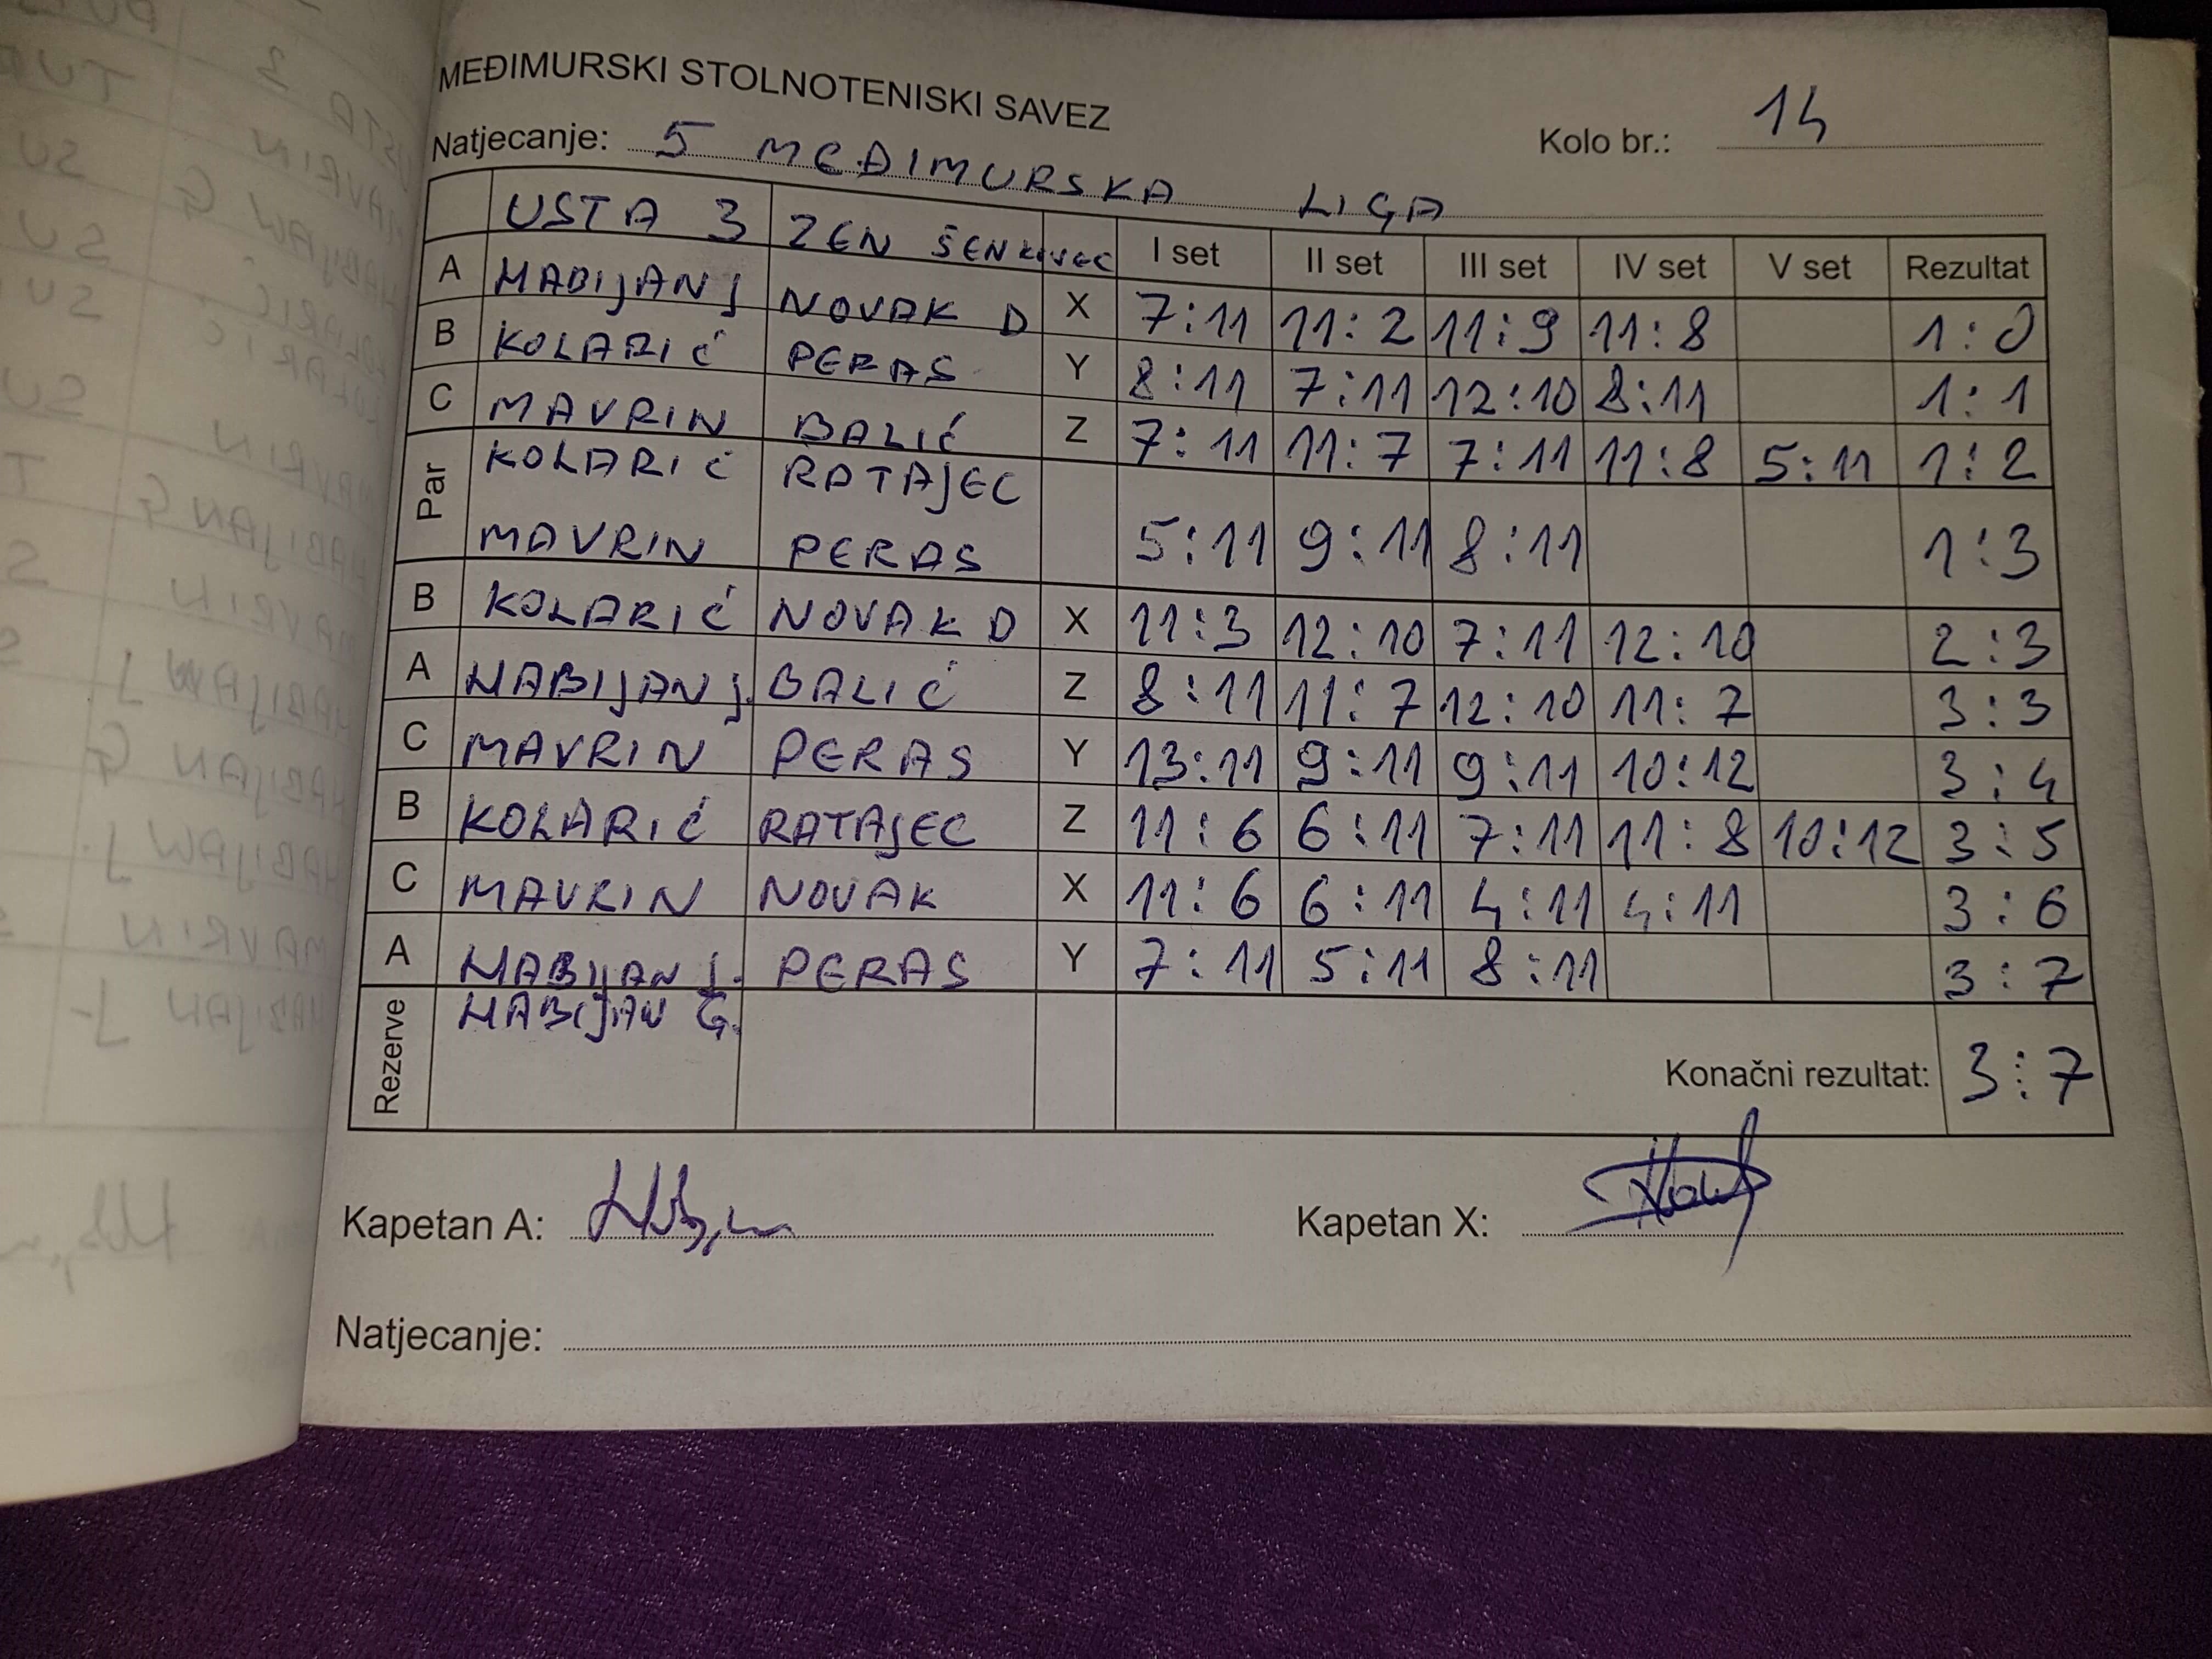 MEĐIMURSKI STOLNOTENISKI SAVEZ
Natjecanje: 5 MEĐIMURSKA LIGA
Kolo br.: 14
USTA 3 ZEN ŠENKOVEC I set II set III set IV set V set Rezultat
A HABIJAN J NOVAK D X 7:11 11:2 11:9 11:8 1:0
B KOLARIĆ PERAS Y 8:11 7:11 12:10 8:11 1:1
C MAVRIN BALIĆ Z 7:11 11:7 7:11 11:8 5:11 1:2
Par KOLARIĆ RATAJEC
MAVRIN PERAS 5:11 9:11 8:11 1:3
B KOLARIĆ NOVAK D X 11:3 12:10 7:11 12:10 2:3
A HABIJAN J. BALIĆ Z 8:11 11:7 12:10 11:7 3:3
C MAVRIN PERAS Y 13:11 9:11 9:11 10:12 3:4
B KOLARIĆ RATAJEC Z 11:6 6:11 7:11 11:8 10:12 3:5
C MAVRIN NOVAK X 11:6 6:11 4:11 4:11 3:6
A HABIJAN J. PERAS Y 7:11 5:11 8:11 3:7
Rezerve HABIJAN G.
Konačni rezultat: 3:7
Kapetan A:
Kapetan X:
Natjecanje: